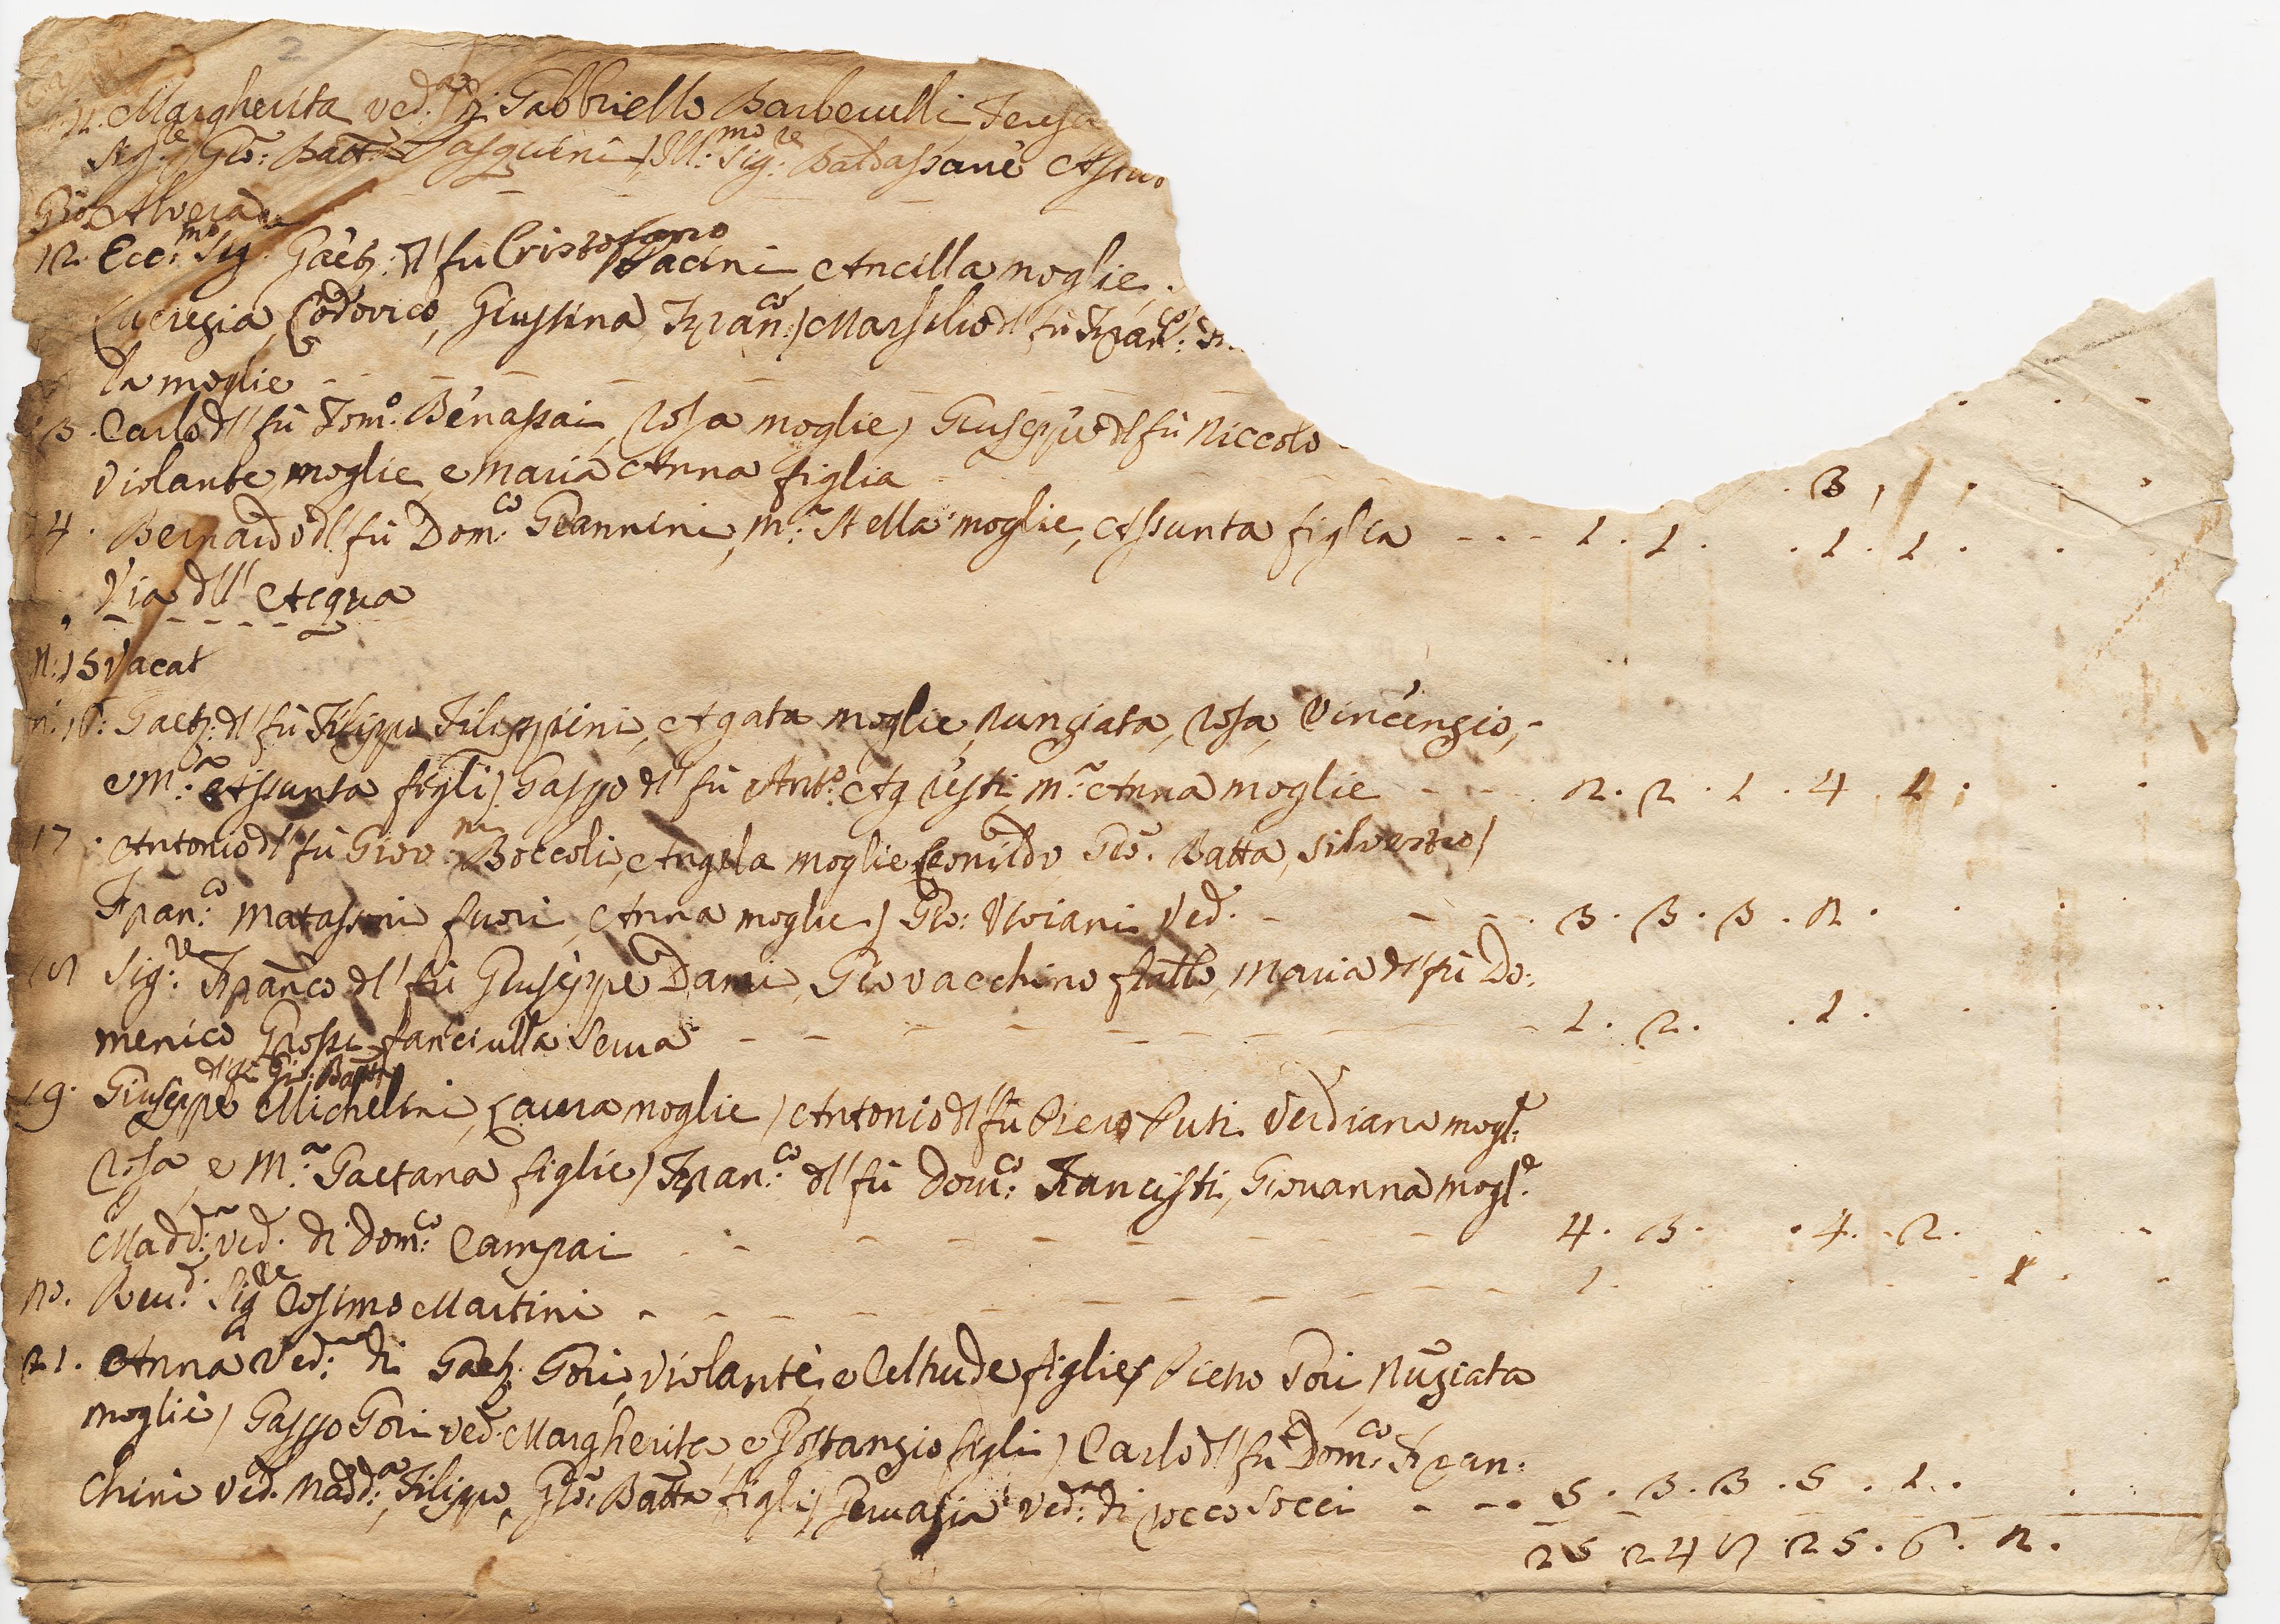 2
n. 11. Margherita ved.a di Gabbriello Barberelli, Teresa
Sig.re Gio: Batt.a Pasquini / Ill.mo Sig.re Baldassarre
Gio: Alvera
12. Ecc.mo Sig. Gaet: dl fu Cristofano Pacini, Ancilla moglie,
Lucrezia, Lodovico, Giustina, Fran.co / Marsilio dl fù Fran.co:
la moglie
13. Carlo dl fù Tom.o Benassai, Rosa moglie / Giuseppe dl fù Niccolo
Violante moglie, e Maria Anna figlia . 3 ,
14. Bernardo dl fù Dom.co Giannini, M.a Stella moglie, Assunta figlia - - - 1 . 1 . . 1 . 1 .
Via dll' Acqua
N: 15 Vacat
n: 16: Gaet: dl fù Filippo Filippini, Agata moglie, Nunziata, Rosa, Vincenzio,
e M.a Assunta figli / Gasp.o dl fù Ant.o Agresti, M.a Anna moglie - - - 2 . 2 . 1 . 4 . 1 .
17. Antonio dl fù Giov.ni Boccoli, Angela moglie, Leonildo, Gio. Batta, Silvestro /
Fran.co Matassini fuori, Anna moglie / Gio: Viviani Ved. - - - 3 . 3 . 3 . 2 .
18 Sig.re Franco dl fù Giuseppe Dami, Giovacchino fratllo, Maria dl fù Do:
menico Grossi fanciulla serva - - - 1 . 2 . . 1 .
dl fù Gio: Batt
19. Giuseppe Michelini, Laura moglie / Antonio dl fù Piero Puti Verdiana mogl.e
Rosa e M.a Gaetana figlie / Fran.co dl fù Dom.co Francisti, Giovanna mogl.e
Madd.a ved. di Dom.co Campai - - - 4 . 3 . . 4 . 2 .
20. Rev.d Sig.re Cosimo Martini - - - 1 . 1 .
21. Anna Ved.a di Gaet. Gori, Violante, e Geltrude figlie / Pietro Gori, Nuziata
moglie / Gaspo Gori ved. Margherita, e Gostanzio figli / Carlo dl fù Dom.co Fran:
chini Ved. Madd.a, Filippo, Gio: Batta figli / Gervasia Ved.a di Rocco Socci - - . 5 . 3 . 3 . 5 . 1 .
25 . 24 8 . 25 . 6 . 2 .